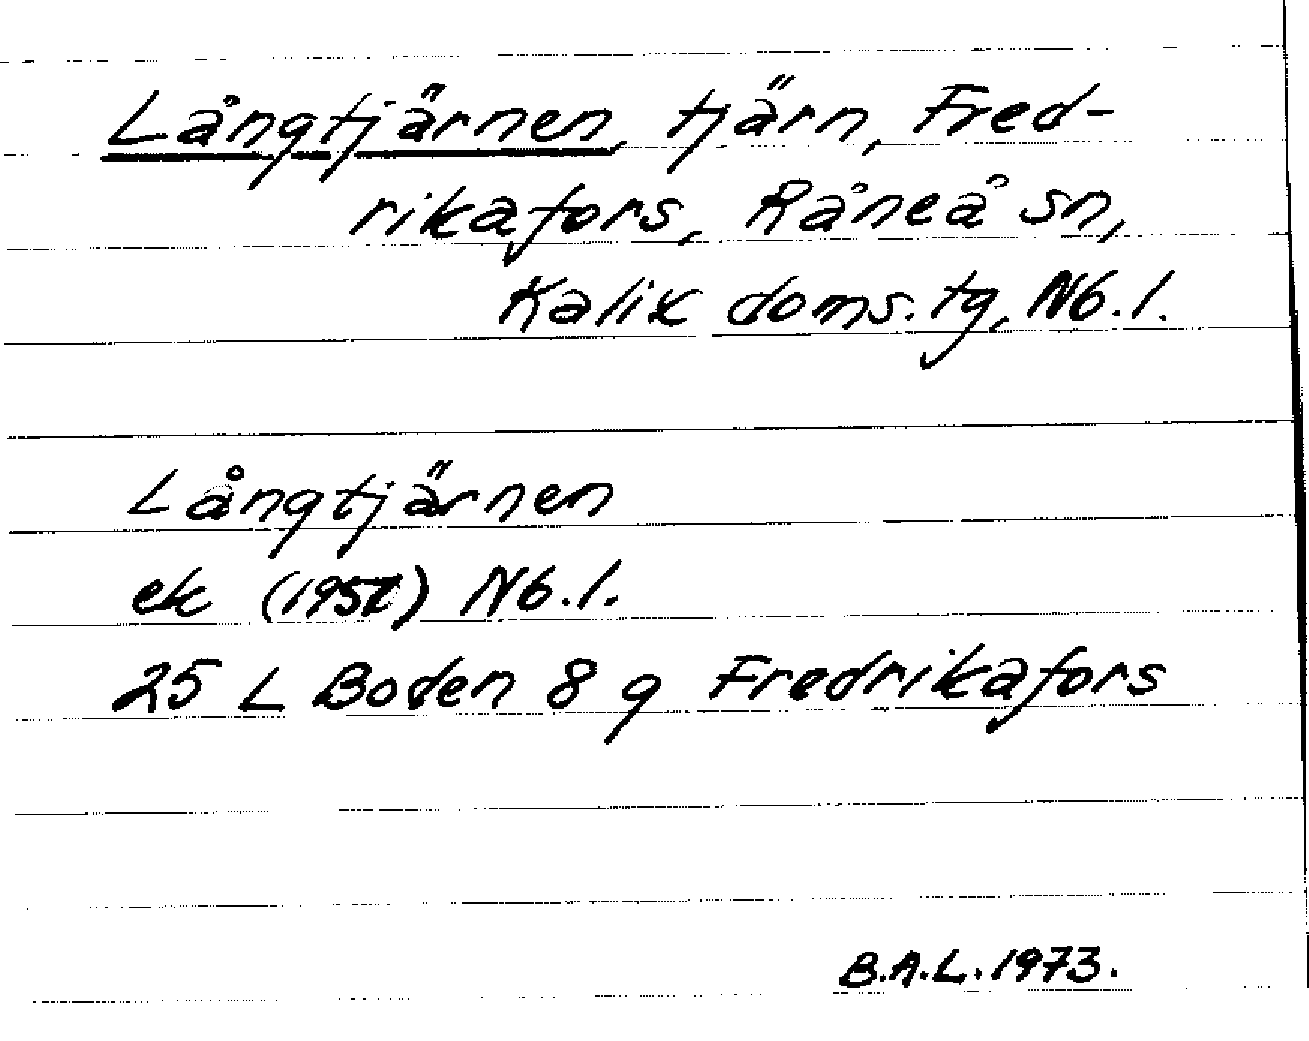 Långtjärnen, tjärn, Fred-
rikafors, Råneå sn,
Kalix doms.tg, Nb.l.
Långtjärnen
ek Nb.l.
25 L Boden 8 g Fredrikafors
B.A.L. 1973.